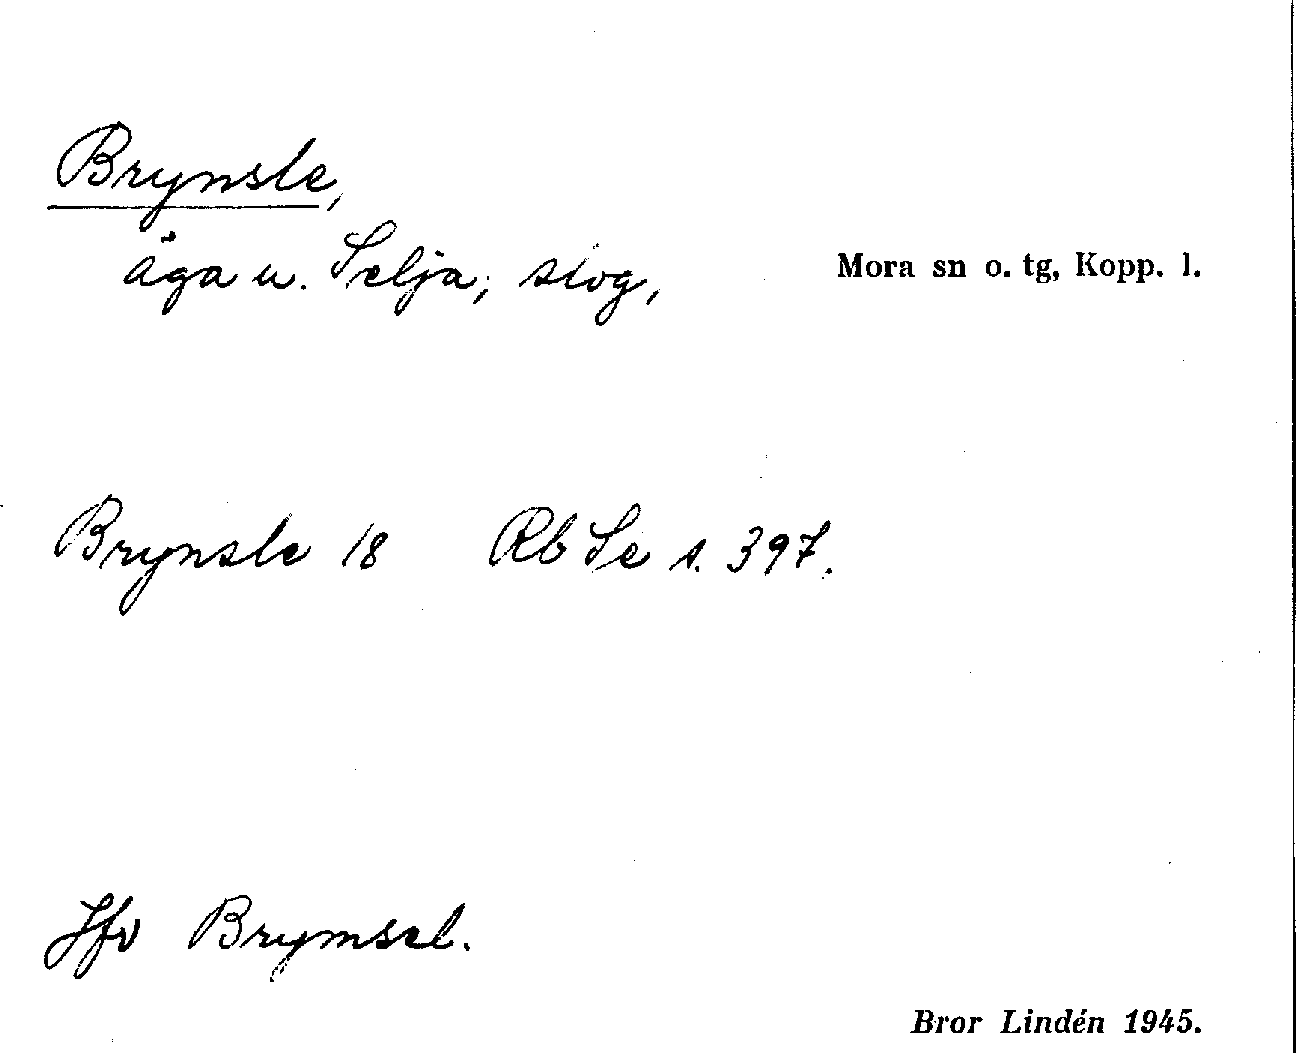 Brynsle,
äga u. Selja; slog,
Mora sn o. tg, Kopp. l.
Brynsle 18 Rb Se s. 397.
Jfv Brymsel.
Bror Lindén 1945.